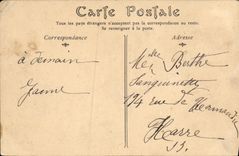 Carte Postale
Tous les pays étrangers n'acceptent pas la correspondance au recto.
Se renseigner à la poste.
Correspondance
Adresse
à demain
Jeanne
Melle Berthe
194 rue de
Havre
S.I.